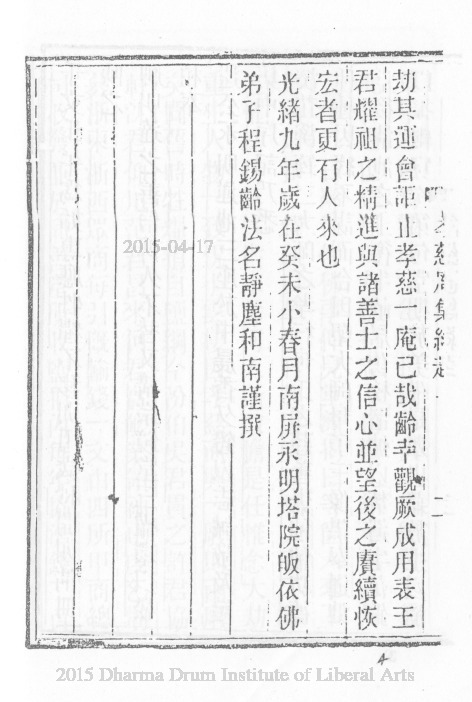 孝慈庵集緣起
二
劫其運會詎止孝慈一庵已哉齡幸觀厥成用表王
君耀祖之精進與諸善士之信心並望後之賡續恢
宏者更有人來也
光緒九年歲在癸未小春月南屏永明塔院皈依佛
弟子程錫齡法名靜塵和南謹撰
2015-04-17
4
2015 Dharma Drum Institute of Liberal Arts